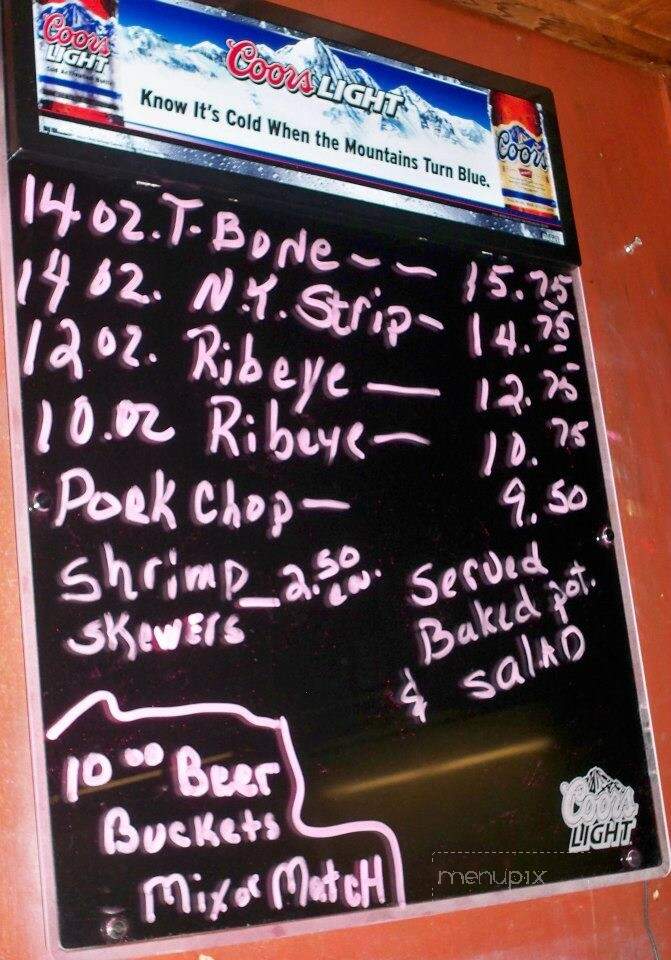 Coors
LIGHT
Coors LIGHT
Know It's Cold When the Mountains Turn Blue.
Coors
14 oz. T-Bone - - 15.75
14 oz. N.Y. Strip - 14.75
12 oz. Ribeye — 12.75
10.oz Ribeye — 10.75
Pork Chop — 9.50
Shrimp - 2.50 ea.
Skewers
Served
Baked pot.
& salad
10 00 Beer
Buckets
Mix or Match
Coors
LIGHT
menupix